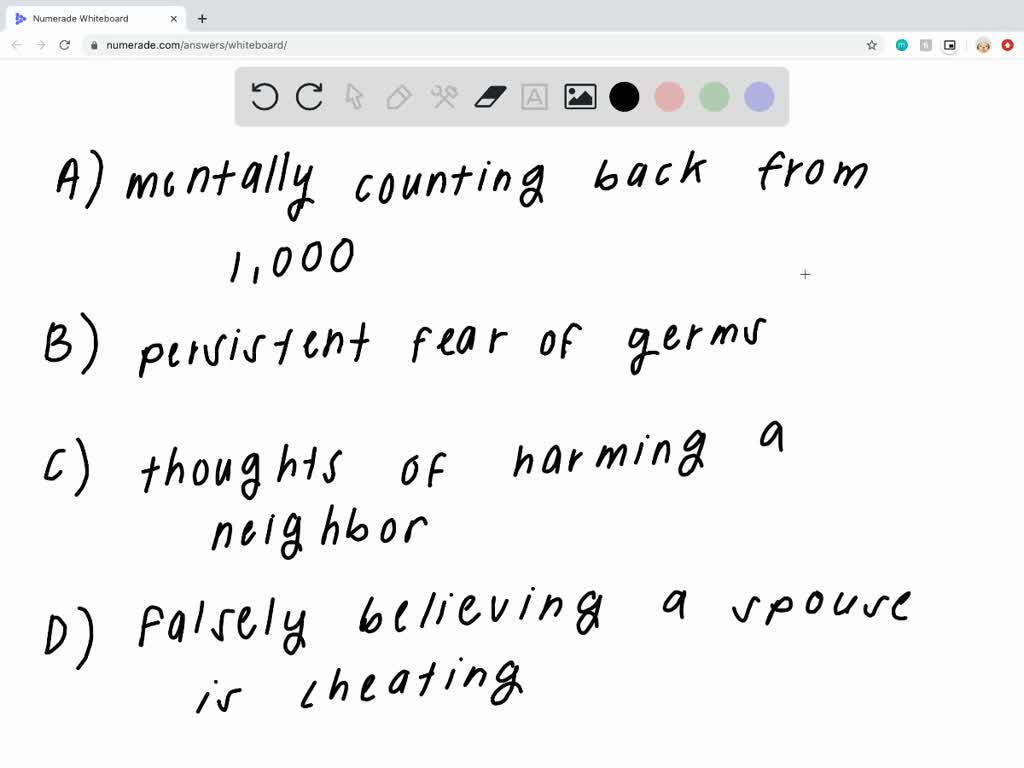 Numerade Whiteboard
numerade.com/answers/whiteboard/
A
A) mentally counting back from
1,000
B) persistent fear of germs
C) thoughts of harming a
neighbor
D) Falsely believing a spouse
is cheating